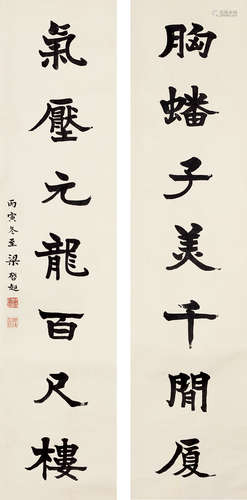 胸蟠子美千間厦
氣壓元龍百尺樓
丙寅冬至 梁啟超